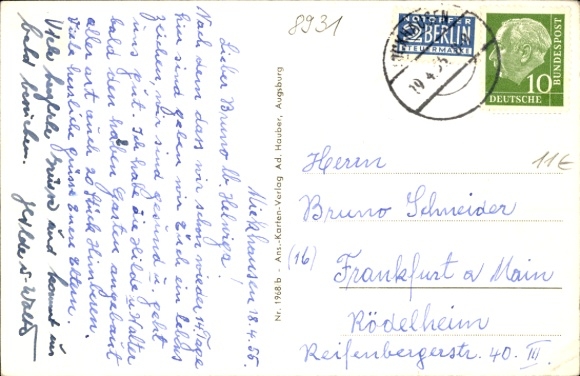 Mickhausen 18.4.55.
Lieber Bruno u. Helwiga!
Nach dem dass wir schon wieder 14 Tage
hier sind geben wir Euch ein Lebens
zeichen, wir sind gesund u. geht
uns gut. Ich habe die Hilde u. Walter
bald den halben Garten angebaut
aller art auch 20 Stück Hühneren.
Viele herzliche grüsse Euren Eltern.
Viele herzliche Grüsse und kommt uns
bald besuchen. Hilde u. Walter
Nr. 1968 b - Ans.-Karten-Verlag Ad. Hauber, Augsburg
8931
NOTOPFER
2 BERLIN
STEUERMARKE
19.4.55
10
DEUTSCHE
BUNDESPOST
11€
Herrn
Bruno Schneider
(16)
Frankfurt a Main
Rödelheim
Reifenbergerstr. 40. III.